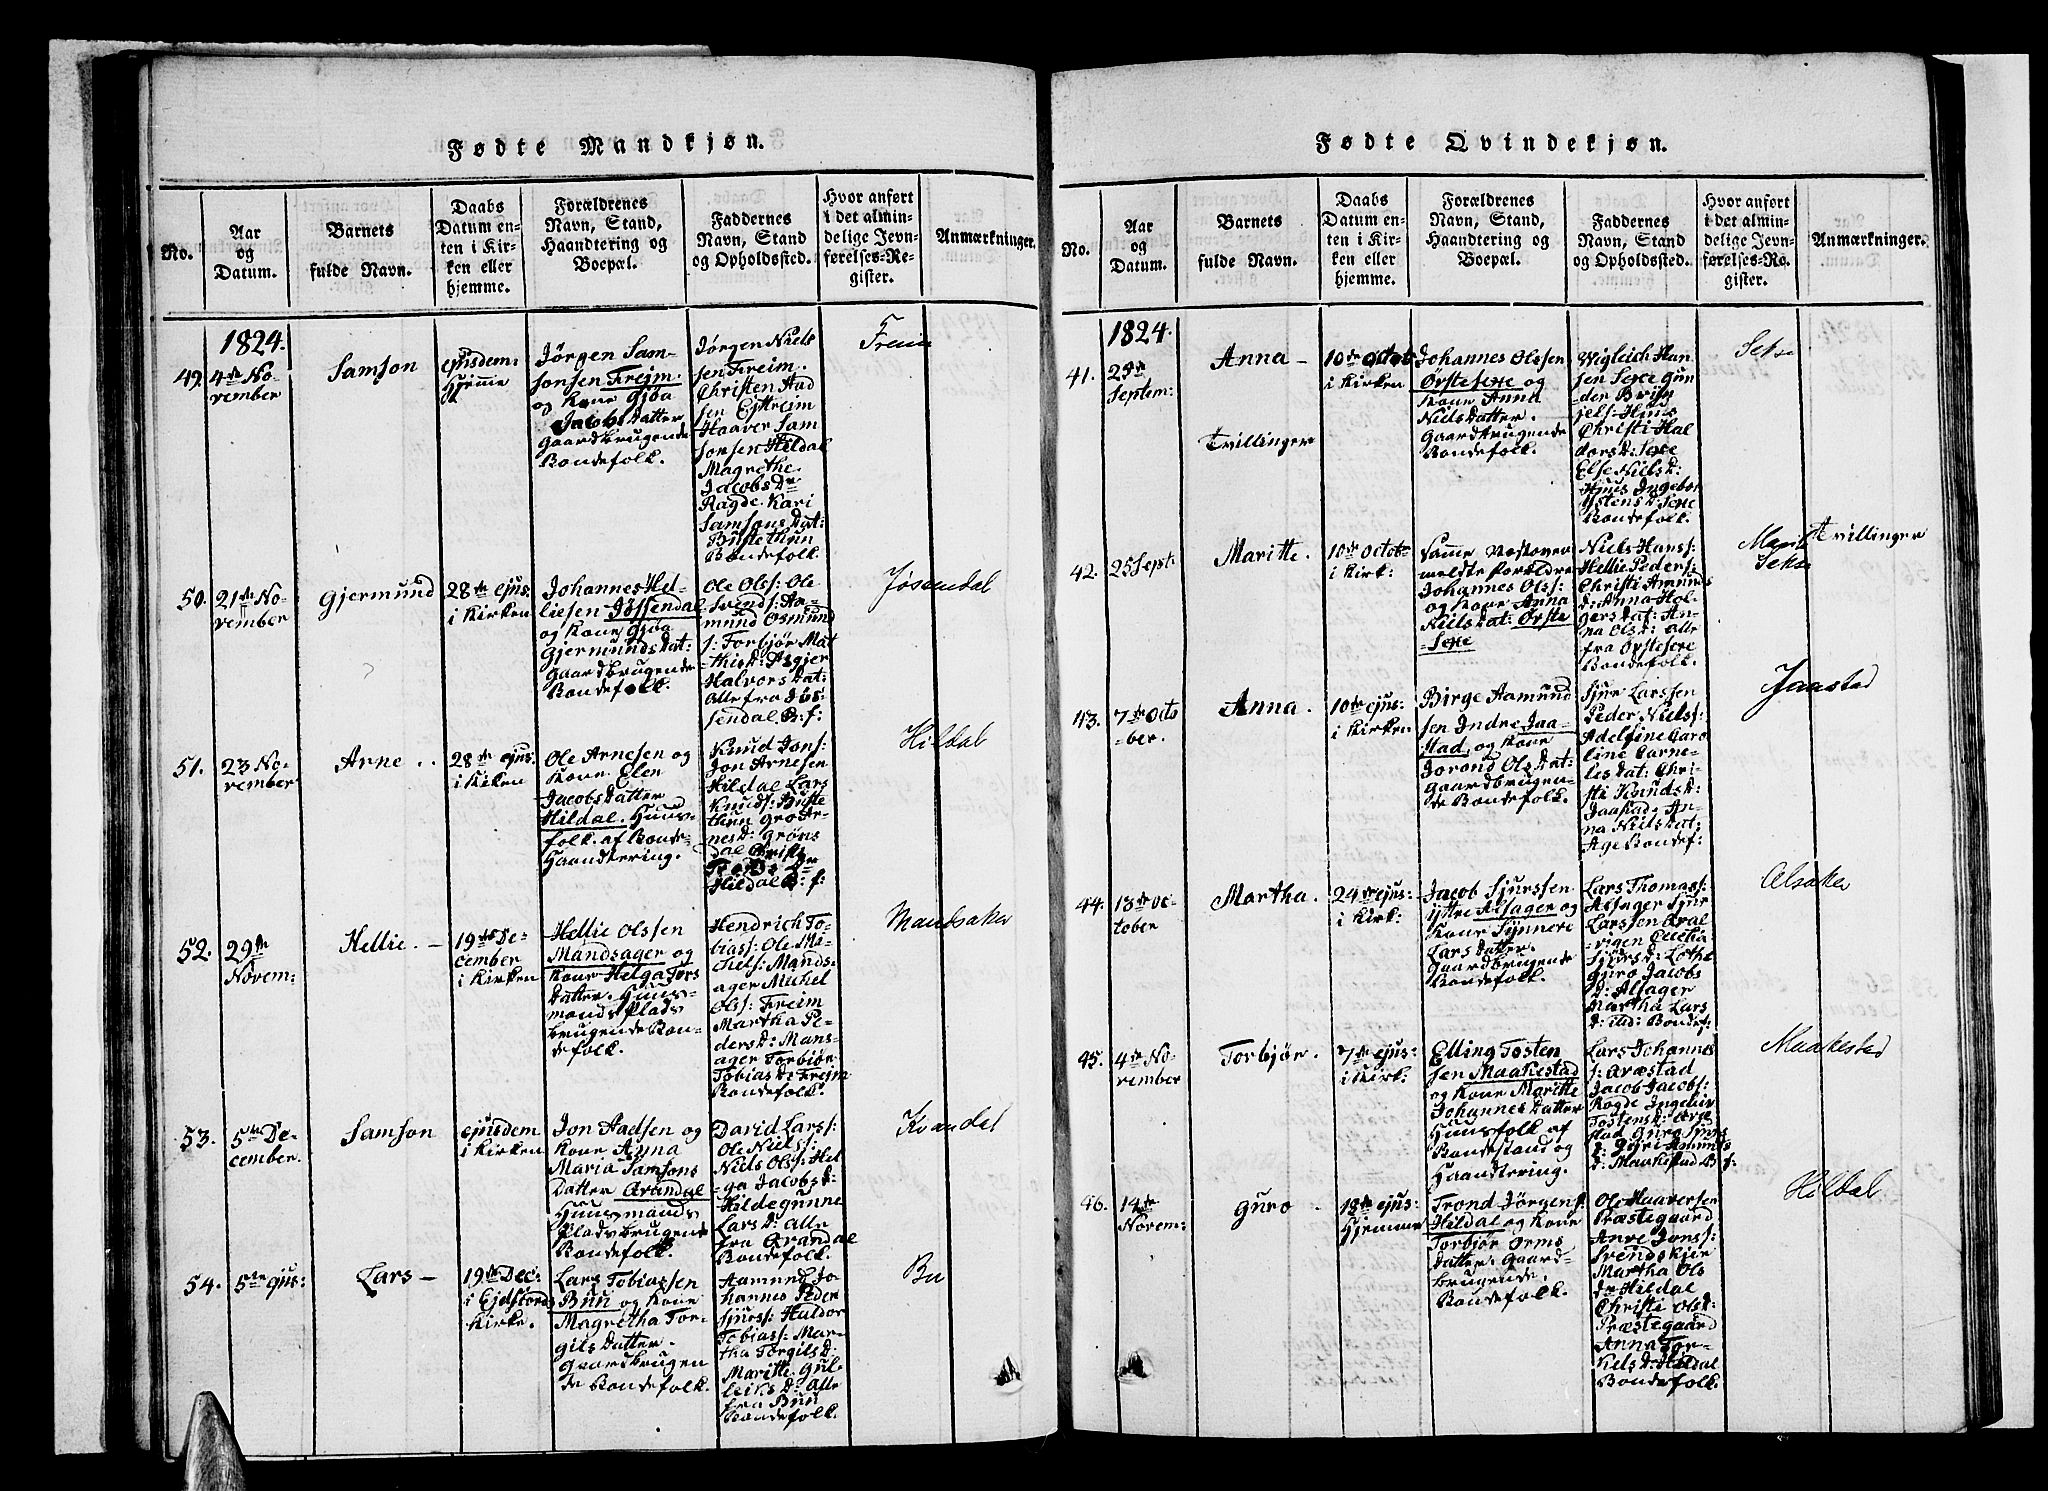 Fødte Mandkjøn.
No.
Aar
og
Datum.
Barnets
fulde Navn.
Daabs
Datum en-
ten i Kir-
ken eller
hjemme.
Forældrenes
Navn, Stand,
Haandtering og
Boepæl.
Faddernes
Navn, Stand
og Opholdssted.
Hvor anført
i det almin-
delige Jevn-
førelses-Re-
gister.
Anmærkninger.
1824.
49.
4de No-
vember
Samson
ejusdem:
Hjemme
Jörgen Sam-
sonsen Freim.
og Kone Gjöa
Jacobs Datter
Gaardbrugende
Bondefolk.
Jörgen Niels
sen Freim.
Christen Aad
sen Ejttreim
Haaver Sam
sonsen Hildal
Magrethe
Jacobs Dr
Ragde. Kari
Samsons Dat:
Bustethun
Bondefolk.
Freim
50.
21de No-
vember
Gjermund
28de ejus:
i Kirken
Johannes Hel-
liesen Jössendal
og Kone Gjöa
Gjermunds Dat:
Gaardbrugende
Bondefolk.
Ole Olss: Ole
Svends: Aa-
mund Osmund
s: Torbjör Mat
this D: Asgjer
Halvors Dat:
Alle fra Jös-
sendal B: f:
Jösendal
51.
23 No-
vember
Arne
28de ejus:
i Kirken
Ole Arnesen og
Kone Elen
Jacobs Datter
Hildal. Huus-
folk. af Bonde-
Haandtering.
Knud Jons:
Jon Arnesen
Hildal Lars
Knuds: Buste
thun Gro Ar-
nes D: Gröns
dal
Hildal B: f:
Hildal
52.
29de
Novem:
Hellie
19de De-
cember
i Kirken
Hellie Olssen
Mandsager og
Kone Helga Tors
Datter. Huus-
mands Plads
brugende Bon-
defolk.
Hendrich To-
bias: Ole Mi-
chels: Mands-
ager Michel
Olss: Freim
Martha Pe-
ders D: Mans-
ager Torbjör
Tobias D: Freim
Bondefolk.
Mandsaker
53.
5te De-
cember.
Samson
ejusdem
i Kirken
Jon Aadsen og
Kone Anna
Maria Samsons
Datter Qvandal
Huusmands
Pladsbrugende
Bondefolk.
David Larss:
Ole Niels:
Niels Olss: Hel
ga Jacobs D:
Hildegunne
Lars D: Alle
fra Qvandal
Bondefolk.
Kvandal
54.
5te ejus:
Lars
19de Dec:
i Ejdsfiords
Kirke.
Lars Tobiassen
Buu og Kone
Magretha Tor-
gils Datter.
Gaardbrugen
de Bondefolk.
Aamund Jo-
hannes Peder
Sjurss: Haldor
Tobias: Mar-
tha Torgils D:
Maritte Gul-
leiks D: Alle
fra Buu
Bondefolk.
Bu
Fødte Qvindekjøn.
No.
Aar
og
Datum.
Barnets
fulde Navn.
Daabs
Datum en-
ten i Kir-
ken eller
hjemme.
Forældrenes
Navn, Stand,
Haandtering og
Boepæl.
Faddernes
Navn, Stand
og Opholdssted.
Hvor anført
i det almin-
delige Jevn-
førelses-Re-
gister.
Anmærkninger.
1824.
41.
Septem:
Anna
Tvillinger
10de Octob
i Kirken
Johannes Olssen
Örstesexe og
Kone Anna
Niels Datter.
Gaardbrugende
Bondefolk.
Wigleich Han
sen Sexe Gun
Christi Hal
dors D: Sexe
Else Niels D:
Hjuus Ingebor
Ystens D: Sexe
Bondefolk.
Sekse
42.
25 Sept:
Maritte.
10de Octob
i Kirk:
Samme Nestover
meldte Foreldre
Johannes Olss:
og Kone Anna
Niels Dat: Örste
Sexe
Niels Hanss:
Hellie Peders:
Christi Amunds
D: Anna Hol-
gers Dat: An-
na Ols D: Alle
fra Örstesexe
Bondefolk.
Sekse
Tvillinger
43.
7de Octo
ber.
Anna.
10de ejus:
i Kirken
Birge Aamund
sen Indre Jaa-
stad. og Kone
Jorond Ols Dat:
Gaardbrugen-
de Bondefolk.
Sjur Larssen
Peder Niels:
Adelgine Caro
line Carne-
lis Dat: Chri-
sti Knuds D:
Jaastad. An-
na Niels Dat:
Age Bondef:
Jaastad
44.
13de Oc-
tober
Martha.
24de ejus:
i Kirk:
Jacob Sjurssen
Yttre Alsager og
Kone Synneve
Lars Datter.
Gaardbrugende
Bondefolk.
Lars Thomass:
Alsager Sjur
Larssen Qval
vigen
Sjurs D: Lothe
Guro Jacobs
D: Alsager
Martha Lars
D: ibd: Bondef:
Alsaker
45.
4de No-
vember
Torbjör.
7de ejus:
i Kirk:
Elling Tosten
sen Maakestad
og Kone Maritte
Johannes Datter
Huusfolk af
Bondestand og
Haandtering.
Lars Johannes
s: Qvæstad
Jacob Jacobs:
Rogde Ingebor
Tostens D: Qvæ
stad Guro Sjurs
D:
D: Maakestad B: f:
Maakestad
46.
14de
Novem:
Guro
18de ejus:
Hjemme
Trond Jörgens:
Hildal og Kone
Torbjör Orms
Datter. Gaard-
brugende.
Bondefolk.
Ole Haaversen
Præstegaard
Anve Jonss:
Svendskjer
Martha Ols
Dr Hildal
Christi Ols D:
Præstegaard
Anna Tor-
kels D: Hildal
Bondefolk.
Hildal